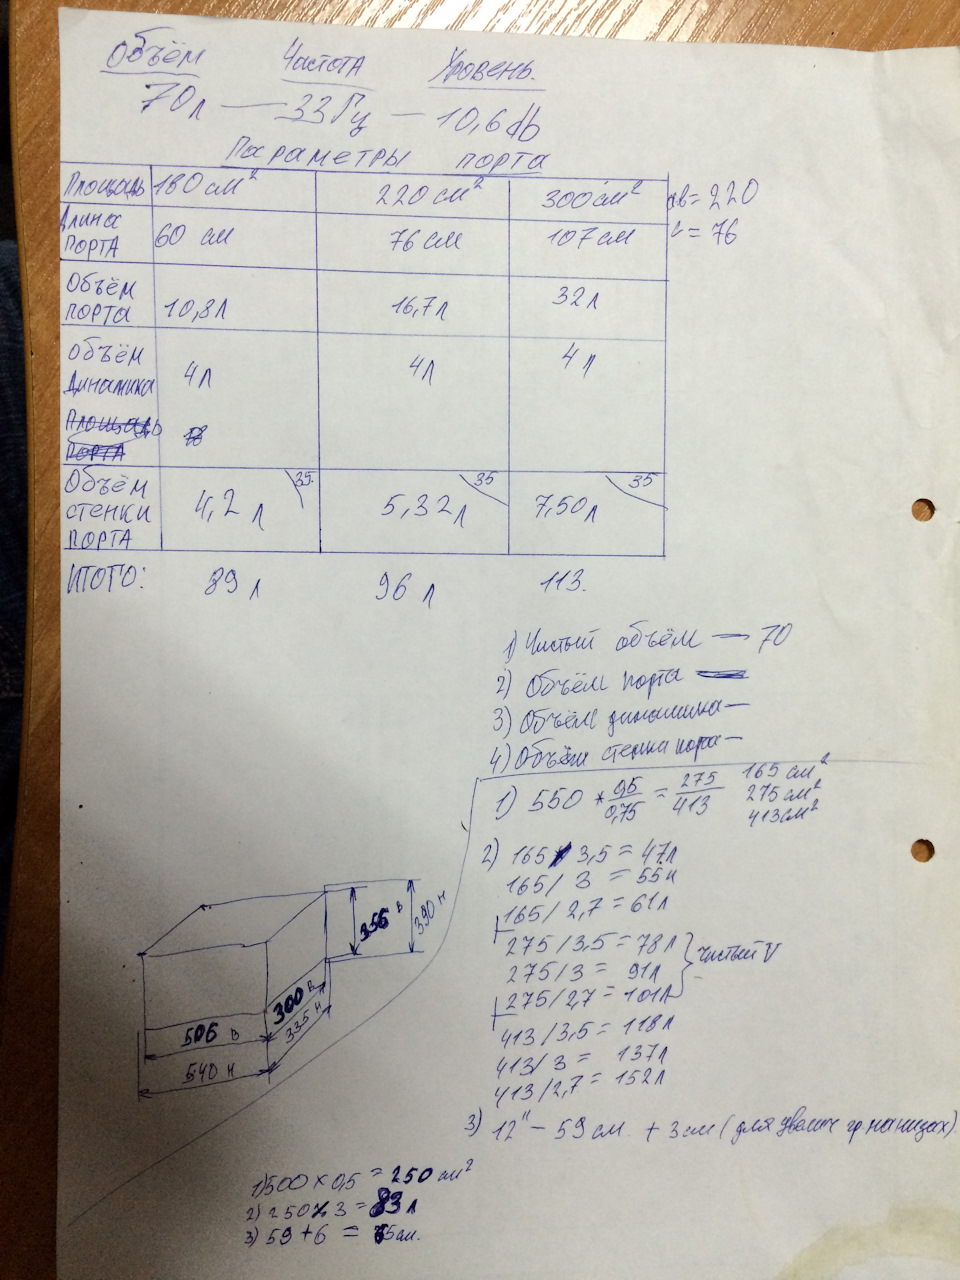 Объём Частота Уровень.
70л — 33Гц — 10,6 db
Параметры порта
Площадь 180 см² 220 см² 300 см² ав = 220
Длина порта 60 см 76 см 107 см = 76
Объём порта 10,8л 16,7л 32л
Объём динамика 4л 4л 4л
Площадь порта
Объём стенки порта 4,2 л 35 5,32л 35 7,50л 35
ИТОГО: 89 л 96 л 113.
1) Чистый объём — 70
2) Объём порта —
3) Объём динамика —
4) Объём стенки порта —
1) 550 * 0,5/0,75 = 275/413 165 см² 275 см² 413см²
2) 165 3,5 = 47л
165/ 3 = 55л
165/ 2,7 = 61л
275/3,5 = 78л
275/3 = 91л чистый V
275/2,7 = 101л
413/3,5 = 118л
413/3 = 137л
413/2,7 = 152л
3) 12" – 59 см. + 3см (для
356 в
390 н
300 в
335 н
506 в
540 н
1) 500 × 0,5 = 250 см²
2) 250 3 = 83 л
3) 59 + 6 = 65см.